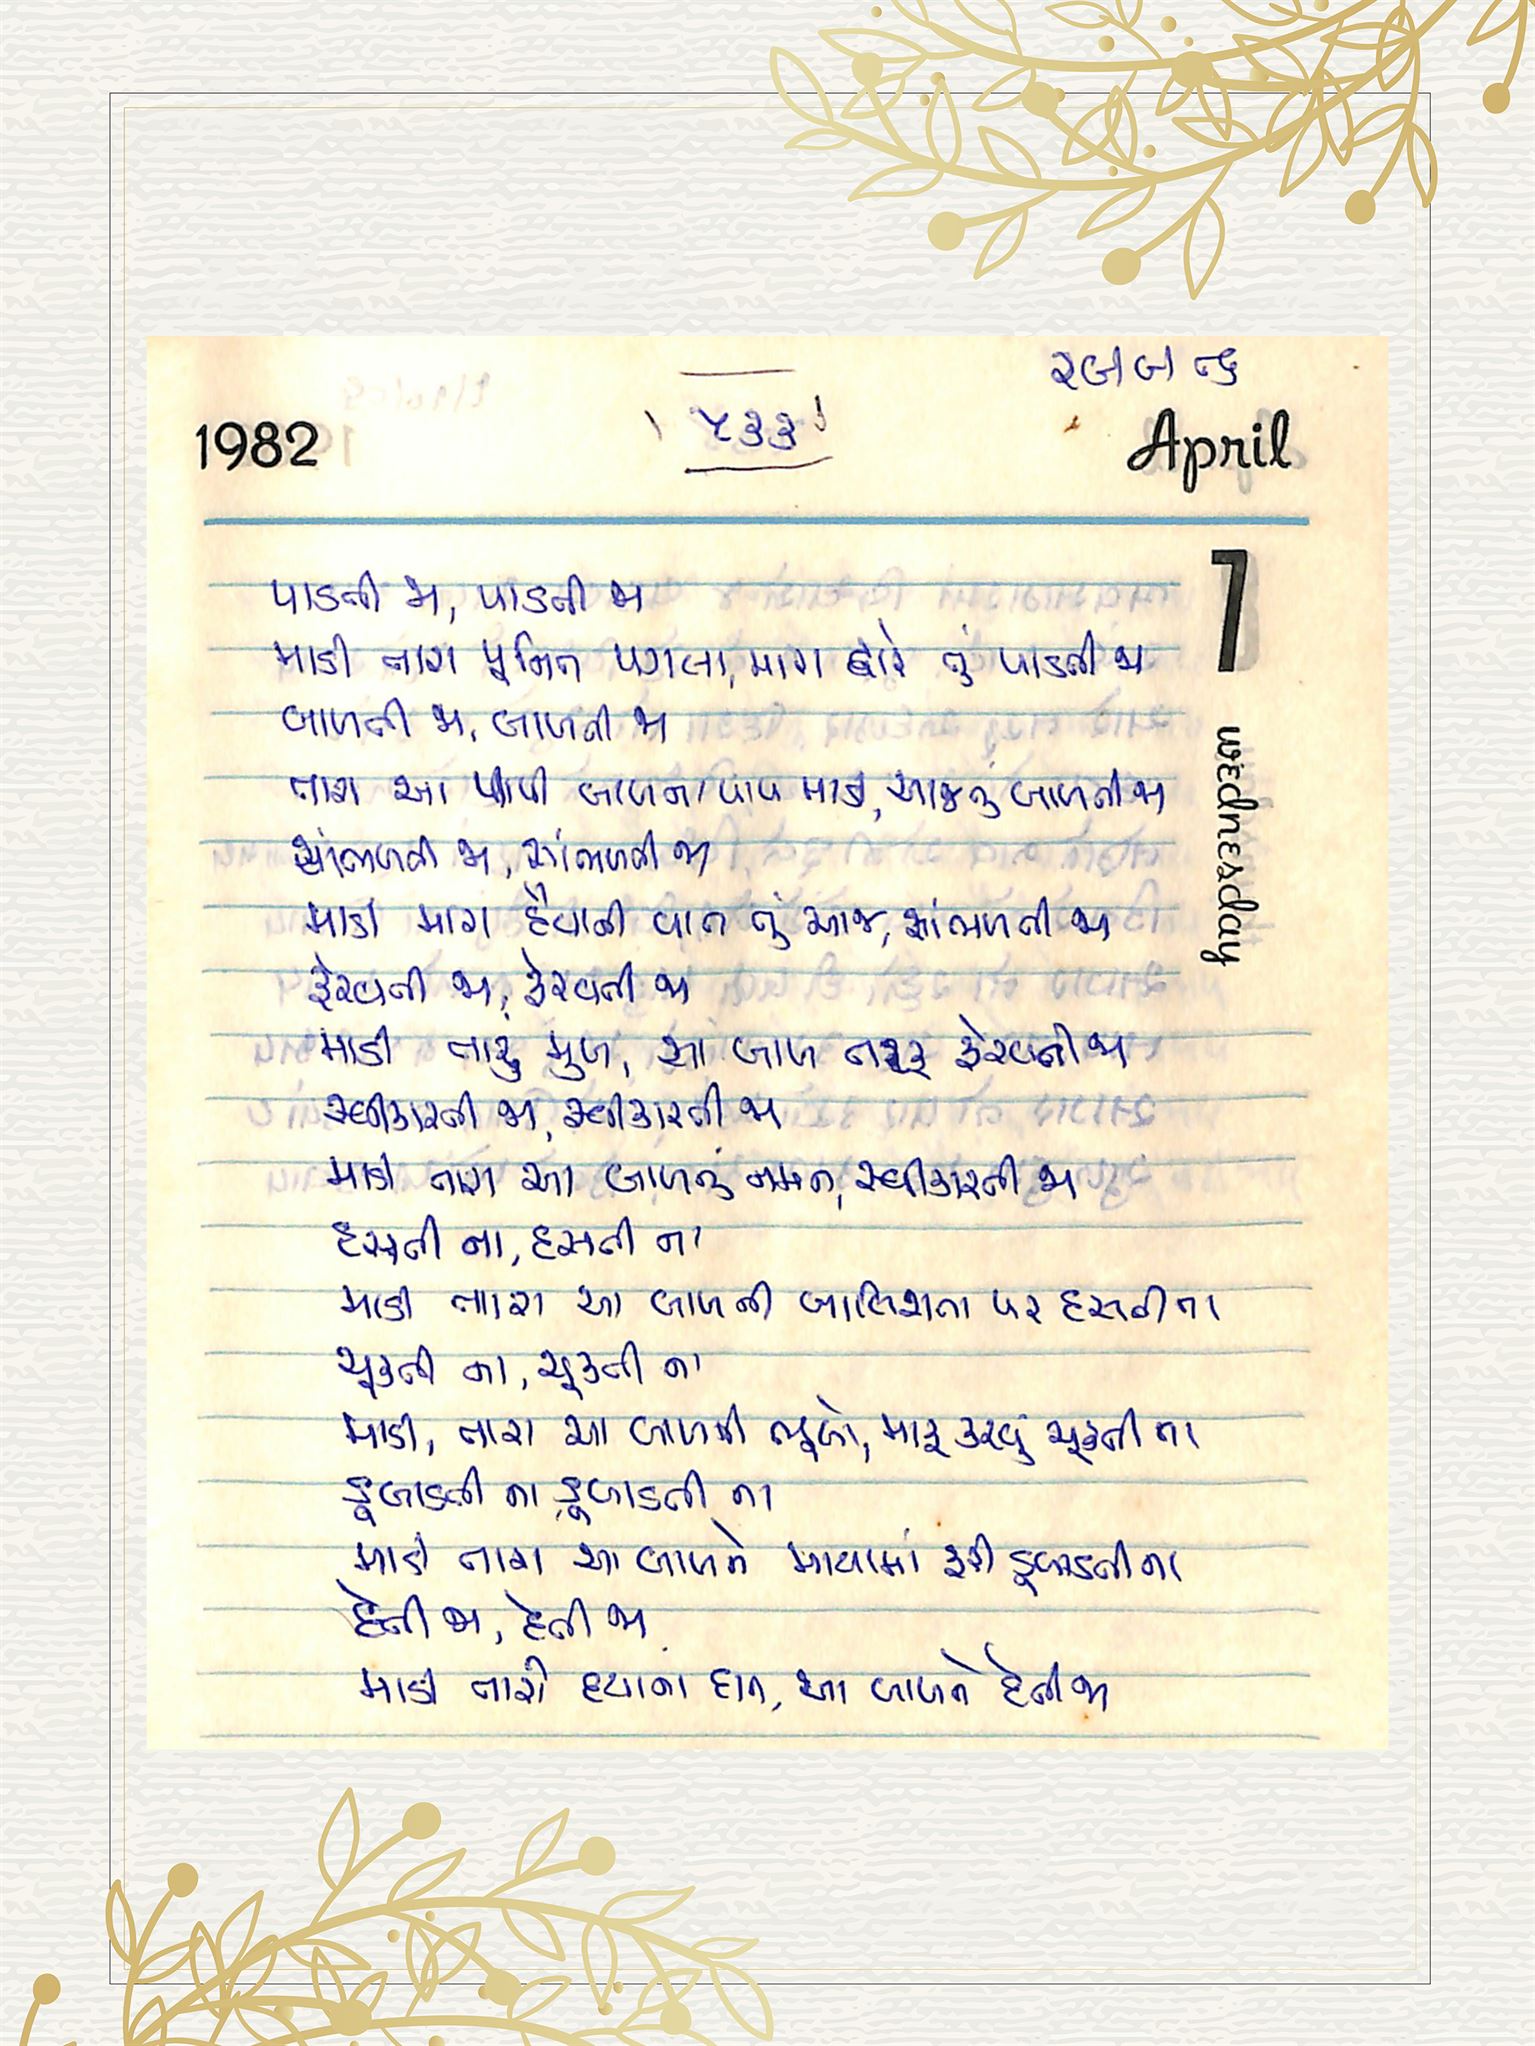 1982
૫૩૩
April
7
wednesday
પાડતી જા, પાડતી જા
માડી તારા પુનિત પગલા, મારા દ્વારે તું પાડતી જા
બાળતી જા, બાળતી જા
તારા આ પાપી બાળના પાપ માડી, આજ તું બાળતી જા
સાંભળતી જા, સાંભળતી જા
માડી મારા હૈયાની વાત તું આજ, સાંભળતી જા
ફેરવતી જા, ફેરવતી જા
માડી તારું મુખ, આ બાળ તરફ ફેરવતી જા
સ્વીકારતી જા, સ્વીકારતી જા
માડી તારા આ બાળનું નમન, સ્વીકારતી જા
હસતી ના, હસતી ના
માડી તારા આ બાળની બાલિશતા પર હસતી ના
ચૂકતી ના, ચૂકતી ના
માડી, તારા આ બાળની ભૂલો, માફ કરવું ચૂકતી ના
ડૂબાડતી ના, ડૂબાડતી ના
માડી તારા આ બાળને માયામાં ફરી ડૂબાડતી ના
દેતી જા, દેતી જા
માડી તારી દયાના દાન, આ બાળને દેતી જા